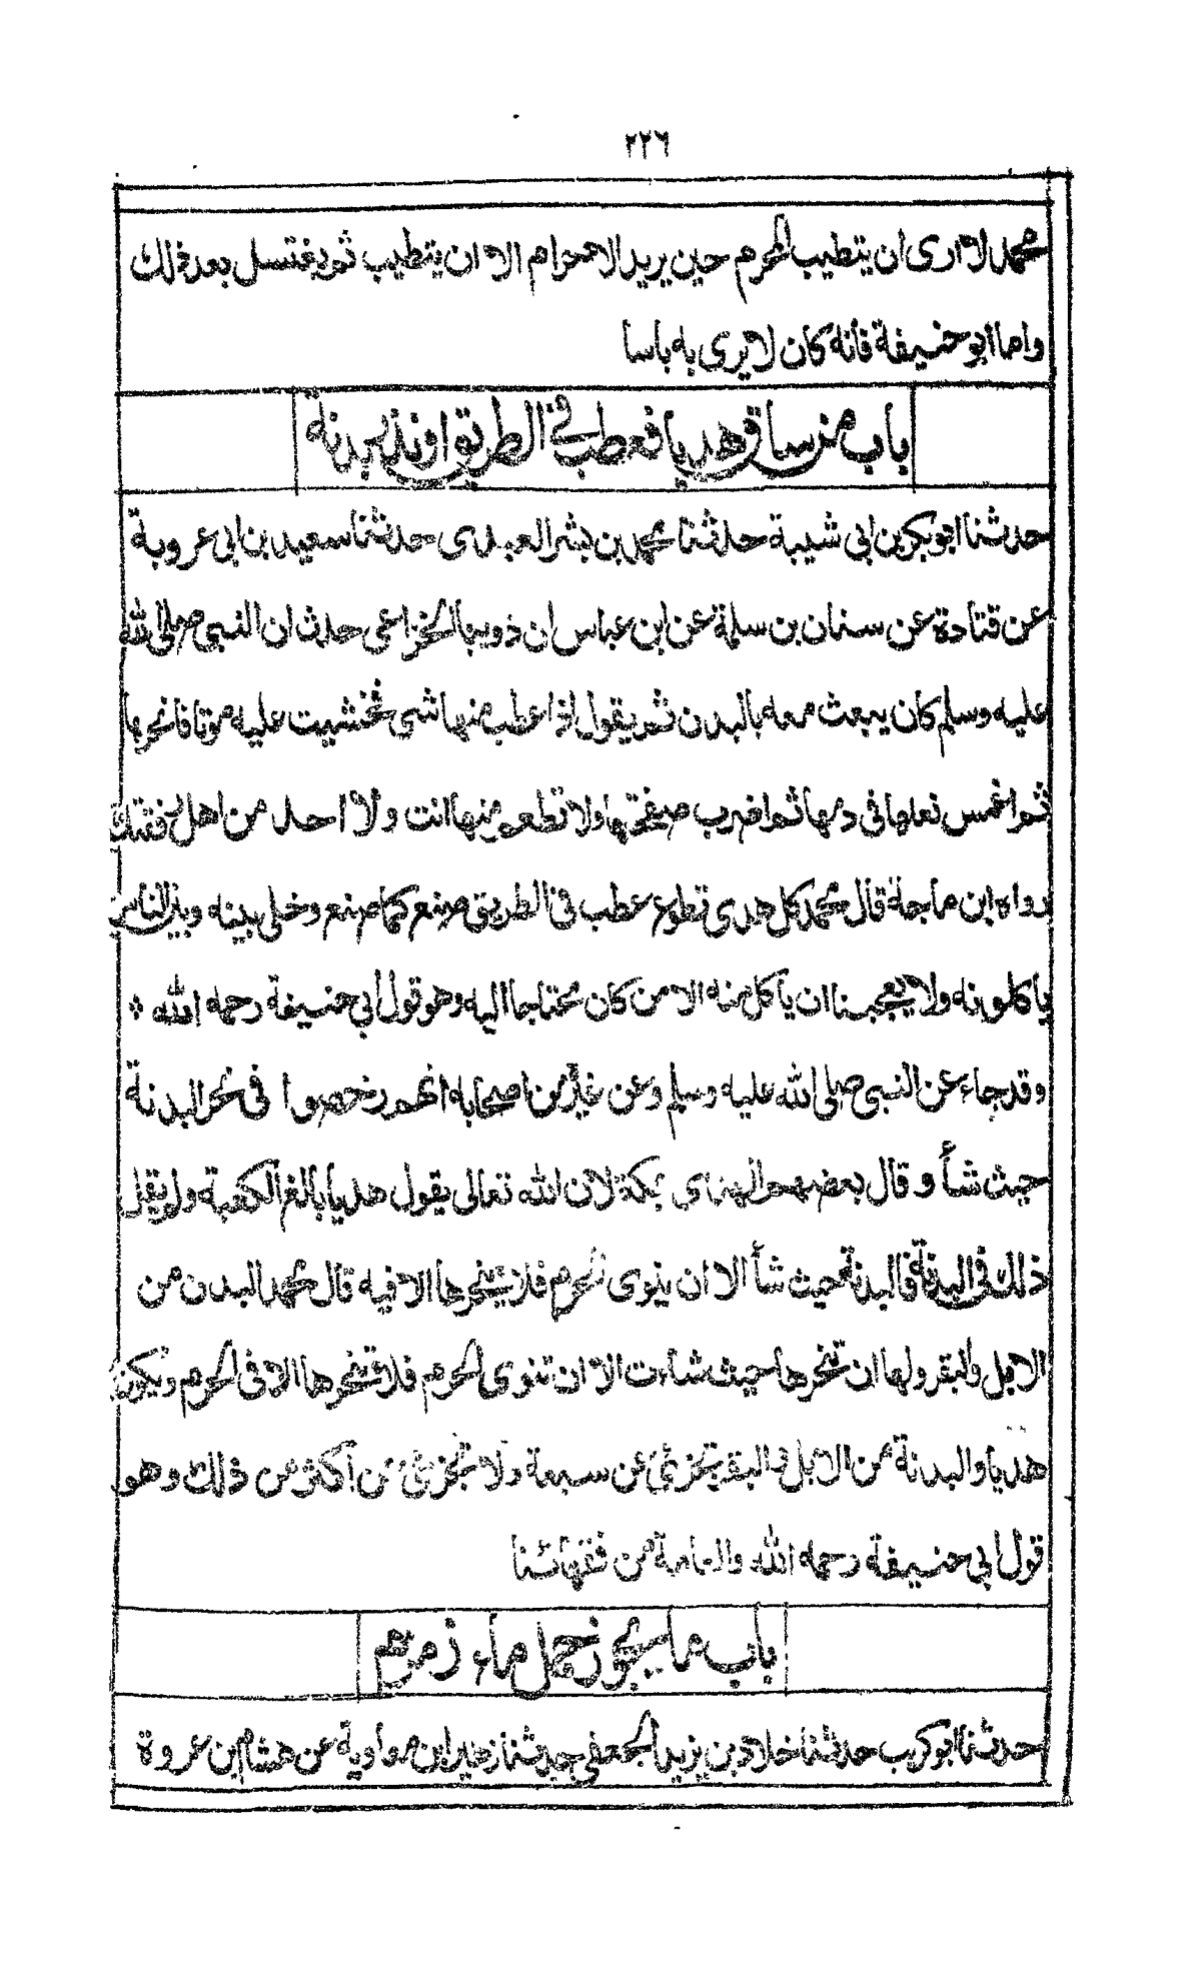 ٢٢٦
محمد لا ارى ان يتطيب المحرم حين يريد الاحرام الا ان يتطيب ثم يغتسل بعد ذلك
واما ابو حنيفة فانه كان لا يرى به باسا
باب من ساق هديا فعطب في الطريق او نذر بدنة
حدثنا ابو بكر بن ابى شيبة حدثنا محمد بن بشر العبدى حدثنا سعيد بن ابى عروبة
عن قتادة عن سنان بن سلمة عن ابن عباس ان ذويبا الخزاعى حدث ان النبى صلى الله
عليه وسلم كان يبعث معه بالبدن ثم يقول اذا عطب منها شى فخشيت عليه موتا فانحرها
ثم اغمس نعلها فى دمها ثم اضرب صفحتها ولا تطعم منها انت ولا احد من اهل رفقتك
رواه ابن ماجة قال محمد كل هدى تطوع عطب فى الطريق صنع كما صنع وخلى بينه وبين الناس
ياكلونه ولا يعجبنا ان ياكل منه الا من كان محتاجا اليه وهو قول ابى حنيفة رحمه الله *
وقد جاء عن النبى صلى الله عليه وسلم وعن غير من اصحابه انهم رخصوا فى نحر البدنة
حيث شأ وقال بعضهم الهدي بمكة لان الله تعالى يقول هديا بالغ الكعبة ولم يقل
ذلك فى البدنة فالبدنة حيث شأ الا ان ينوى الحرم فلا ينحرها الا فيه قال محمد البدن من
الابل والبقر ولها ان تنحرها حيث شاءت الا ان تنوى الحرم فلا تنحرها الا فى الحرم ويكون
هديا والبدنة من الابل والبقر تجزئ عن سبعة ولا تجزئ عن اكثر من ذلك وهو
قول ابى حنيفة رحمه الله والعامة من فقهائنا
باب ما يجوز حمل ماء زمزم
حدثنا ابو كريب حدثنا خلاد بن يزيد الجعفى حدثنا زهير ابن معاوية عن هشام بن عروة